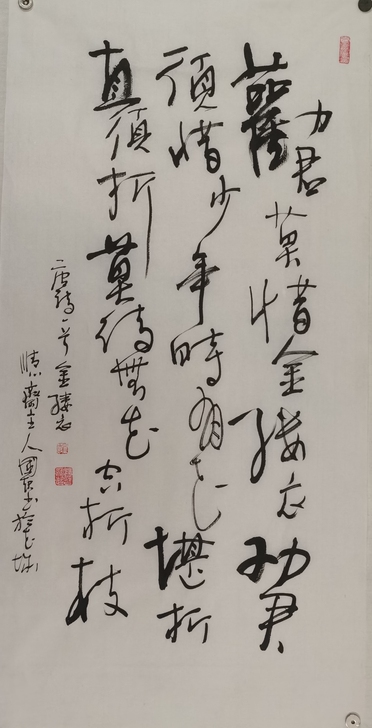 勸君莫惜金縷衣勸君
須惜少年時有花堪折
直須折莫待無花空折枝
唐詩一首金縷衣
惰齋主人國平書於